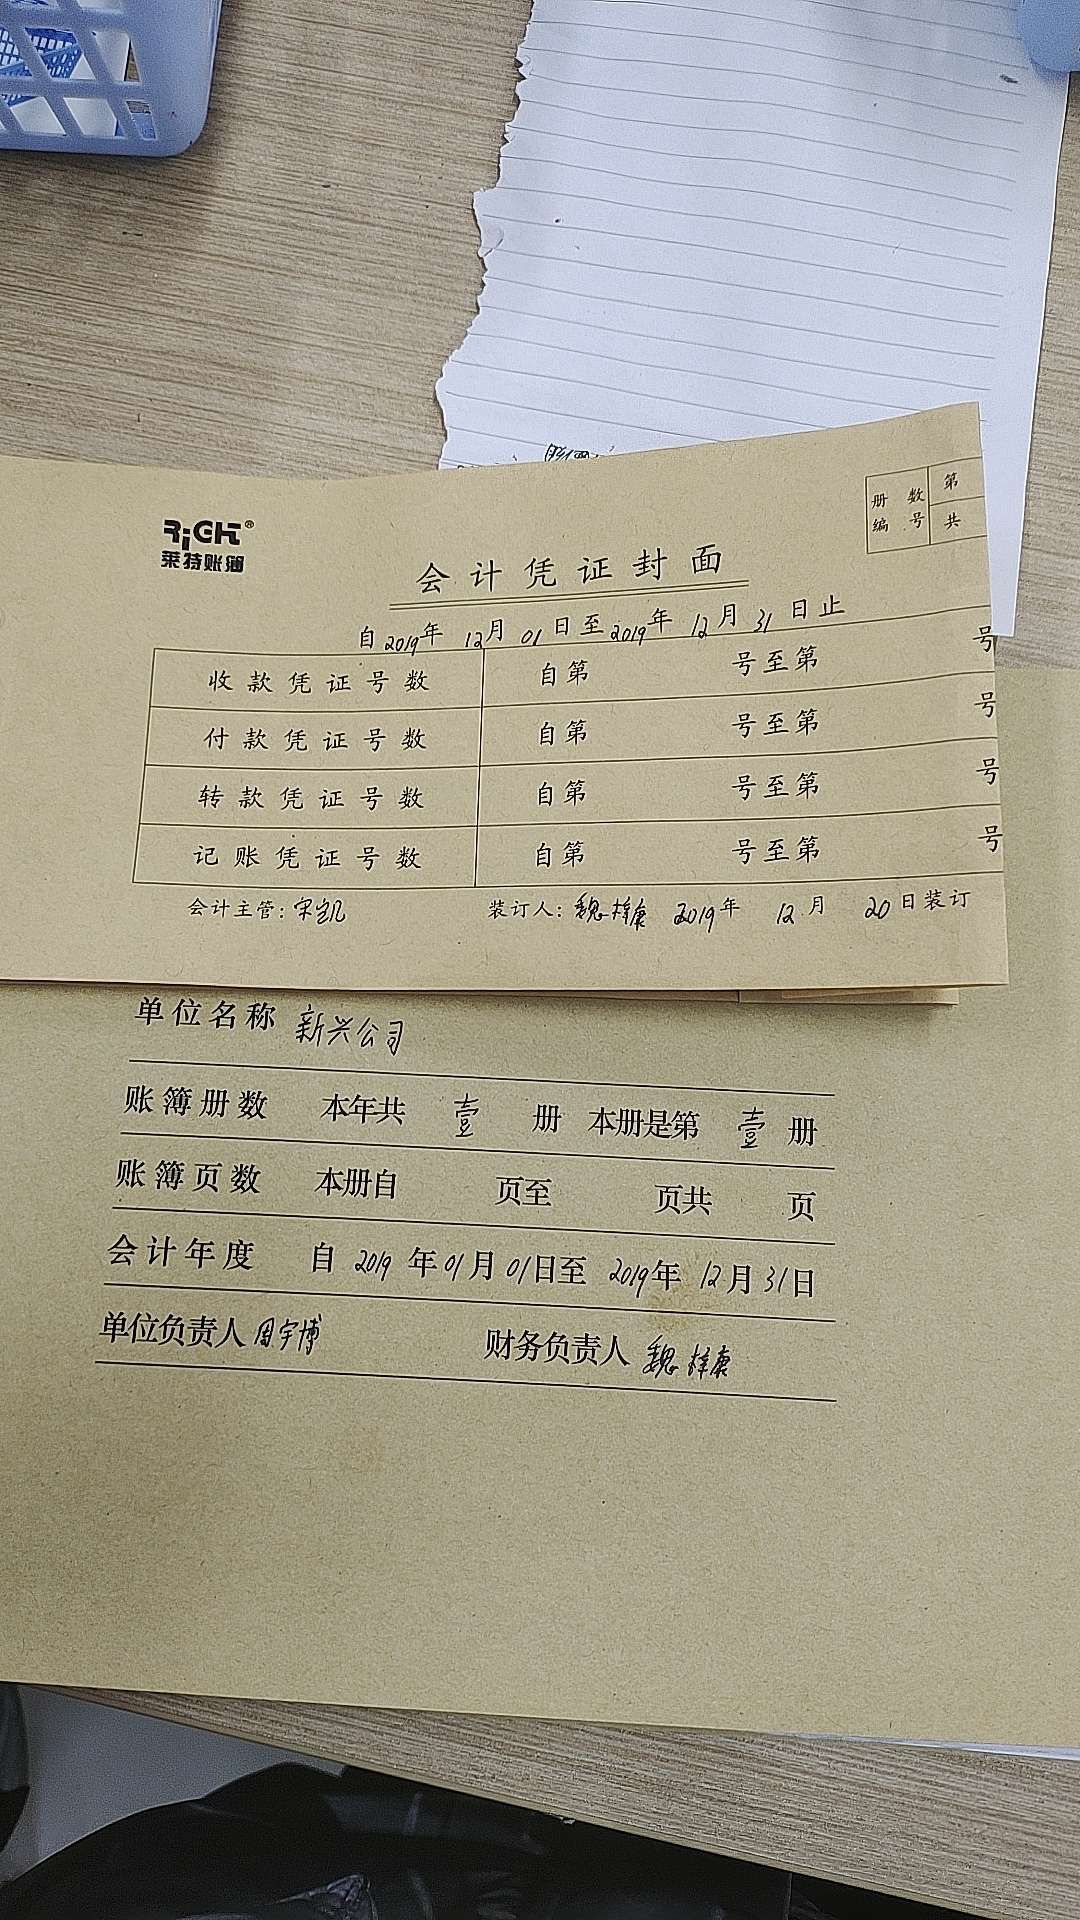 RiCHT®
莱特账簿
册数编号 第 共
会计凭证封面
自2019年12月01日至2019年12月31日止
收款凭证号数 自第 号至第 号
付款凭证号数 自第 号至第 号
转款凭证号数 自第 号至第 号
记账凭证号数 自第 号至第 号
会计主管:宋凯 装订人:魏梓康 2019年12月20日装订
单位名称 新兴公司
账簿册数 本年共 壹 册 本册是第 壹 册
账簿页数 本册自 页至 页共 页
会计年度 自2019年01月01日至2019年12月31日
单位负责人 周宇博 财务负责人 魏梓康